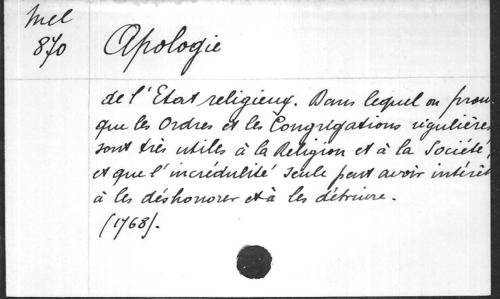 Mel
870
Apologie
de l'Etat religieux. Dans lequel on prouv
que les Ordres et les Congrégations régulières
sont très utiles à la Religion et à la Société,
et que l'incrédulité seule peut avoir intérêt
à les déshonorer et à les détruire.
(1768).